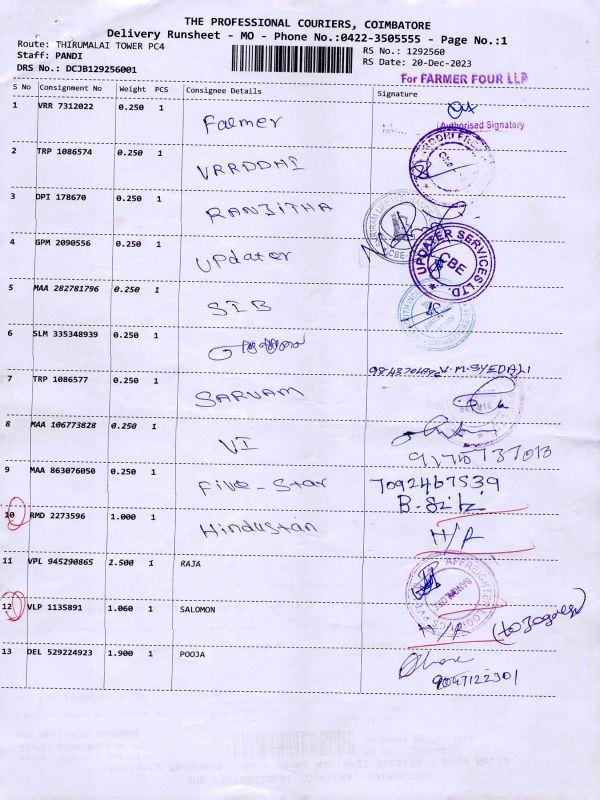 THE PROFESSIONAL COURIERS, COIMBATORE
Delivery Runsheet - MO - Phone No.:0422-3505555 - Page No.:1
Route: THIRUMALAI TOWER PC4
RS No.: 1292560
Staff: PANDI
RS Date: 20-Dec-2023
DRS No.: DCJB129256001
For FARMER FOUR LLP
S No Consignment No Weight PCS Consignee Details Signature
1 VRR 7312022 0.250 1 Falmer
Authorised Signatory
2 TRP 1086574 0.250 1 VRRDDHI
3 DPI 178670 0.250 1 RANJITHA
4 GPM 2090556 0.250 1 Updater
UPDATER SERVICES LTD. CBE
5 MAA 282781796 0.250 1 SIB
6 SLM 335348939 0.250 1
V.M.SYEDALI
7 TRP 1086577 0.250 1 SARVAM
8 MAA 106773828 0.250 1 VI
9 MAA 863076050 0.250 1 Five-Star 7092467539
10 RMD 2273596 1.000 1 Hindustan H/R
11 VPL 945290865 2.500 1 RAJA
12 VLP 1135891 1.060 1 SALOMON H/R
13 DEL 529224923 1.900 1 POOJA
9047122301